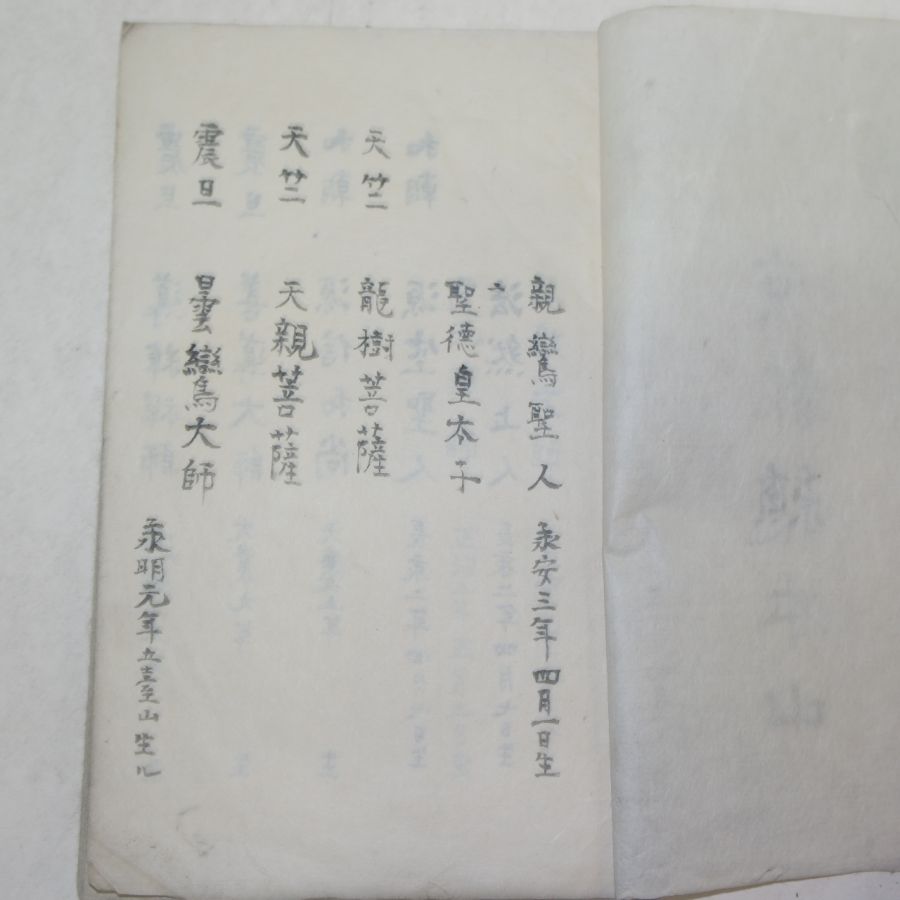 親鸞聖人 承安三年四月一日生
聖德皇太子
天竺 龍樹菩薩
天竺 天親菩薩
震旦 曇鸞大師
永明元年五臺山生